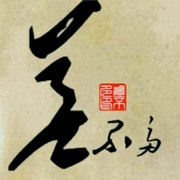 差不多